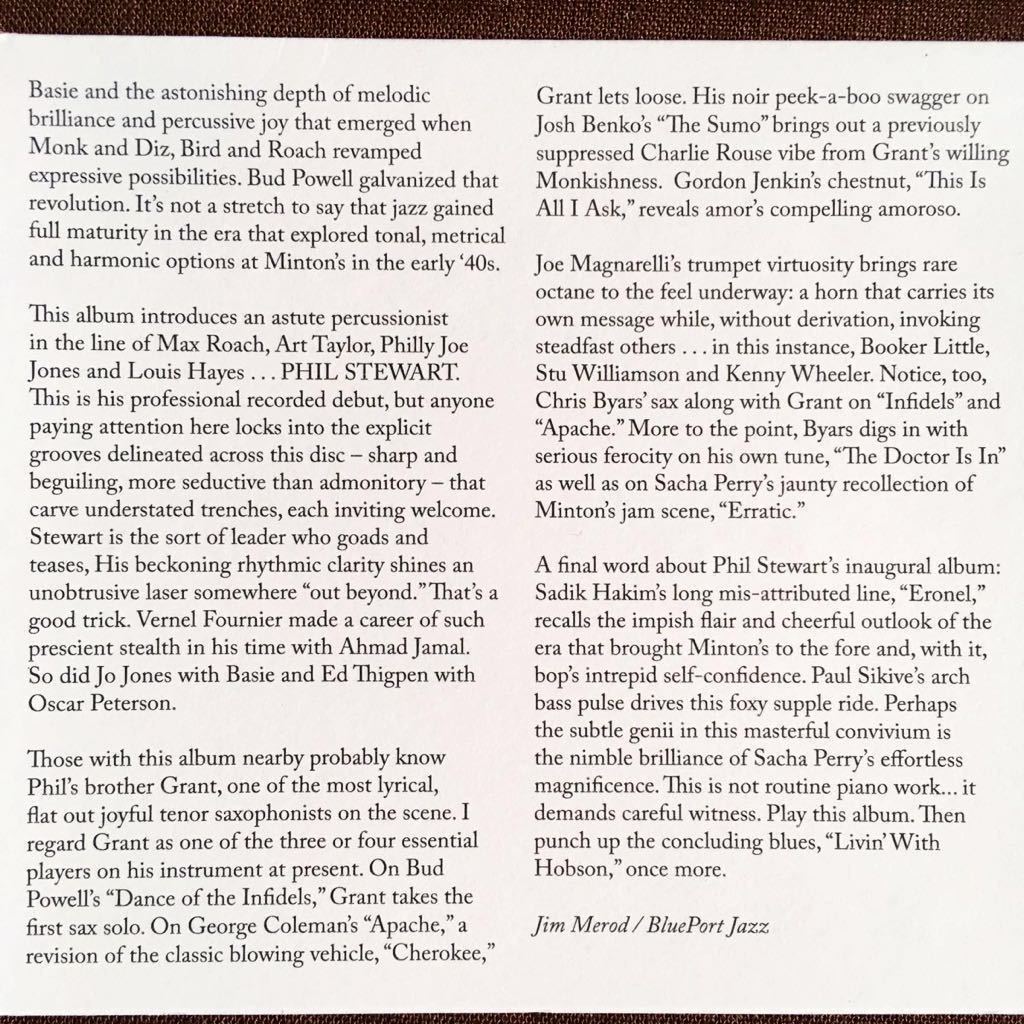 Basie and the astonishing depth of melodic
brilliance and percussive joy that emerged when
Monk and Diz, Bird and Roach revamped
expressive possibilities. Bud Powell galvanized that
revolution. It's not a stretch to say that jazz gained
full maturity in the era that explored tonal, metrical
and harmonic options at Minton's in the early '40s.
This album introduces an astute percussionist
in the line of Max Roach, Art Taylor, Philly Joe
Jones and Louis Hayes . . . PHIL STEWART.
This is his professional recorded debut, but anyone
paying attention here locks into the explicit
grooves delineated across this disc – sharp and
beguiling, more seductive than admonitory – that
carve understated trenches, each inviting welcome.
Stewart is the sort of leader who goads and
teases, His beckoning rhythmic clarity shines an
unobtrusive laser somewhere "out beyond." That's a
good trick. Vernel Fournier made a career of such
prescient stealth in his time with Ahmad Jamal.
So did Jo Jones with Basie and Ed Thigpen with
Oscar Peterson.
Those with this album nearby probably know
Phil's brother Grant, one of the most lyrical,
flat out joyful tenor saxophonists on the scene. I
regard Grant as one of the three or four essential
players on his instrument at present. On Bud
Powell's "Dance of the Infidels," Grant takes the
first sax solo. On George Coleman's "Apache," a
revision of the classic blowing vehicle, "Cherokee,"
Grant lets loose. His noir peek-a-boo swagger on
Josh Benko's "The Sumo" brings out a previously
suppressed Charlie Rouse vibe from Grant's willing
Monkishness.  Gordon Jenkin's chestnut, "This Is
All I Ask," reveals amor's compelling amoroso.
Joe Magnarelli's trumpet virtuosity brings rare
octane to the feel underway: a horn that carries its
own message while, without derivation, invoking
steadfast others . . . in this instance, Booker Little,
Stu Williamson and Kenny Wheeler. Notice, too,
Chris Byars' sax along with Grant on "Infidels" and
"Apache." More to the point, Byars digs in with
serious ferocity on his own tune, "The Doctor Is In"
as well as on Sacha Perry's jaunty recollection of
Minton's jam scene, "Erratic."
A final word about Phil Stewart's inaugural album:
Sadik Hakim's long mis-attributed line, "Eronel,"
recalls the impish flair and cheerful outlook of the
era that brought Minton's to the fore and, with it,
bop's intrepid self-confidence. Paul Sikive's arch
bass pulse drives this foxy supple ride. Perhaps
the subtle genii in this masterful convivium is
the nimble brilliance of Sacha Perry's effortless
magnificence. This is not routine piano work... it
demands careful witness. Play this album. Then
punch up the concluding blues, "Livin' With
Hobson," once more.
Jim Merod / BluePort Jazz